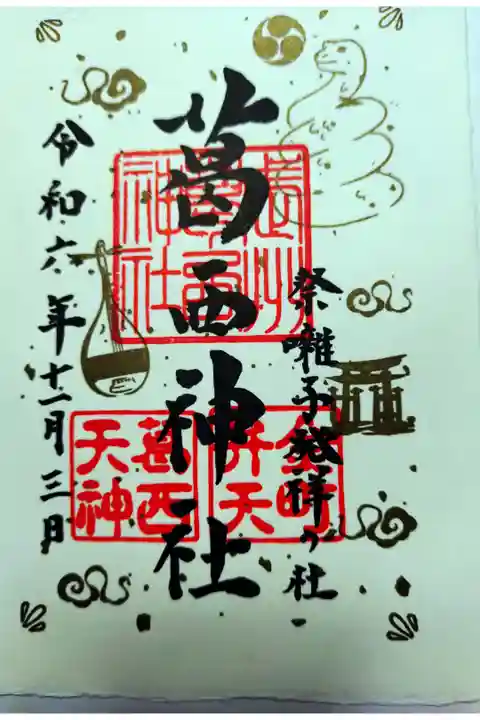 祭囃子発祥の社
葛西神社
令和六年十一月三日
葛西神社
金町弁天
葛西天神